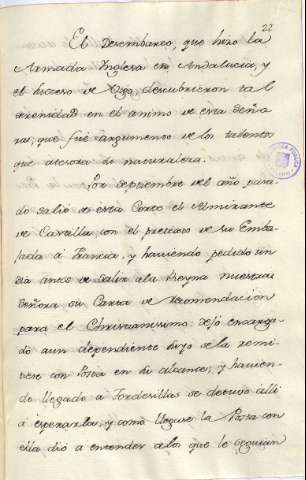 22
El Desembarco, que hizo la
Armada Inglesa en Andalucia, y
el suceso de Vigo, descubrieron tal
serenidad en el animo de esta Seño
ra, que fué argumento de los talentos
que atesora su naturaleza.
Por Septiembre del año pasa
do salió de esta Corte el Almirante
de Castilla, con el pretexto de su Emba
jada à Francia, y haviendo pedido un
dia antes de salir ala Reyna nuestra
Señora su Carta de recomendacion
para el Christianisimo dejó encarga
do aun dependiente suyo se la remi
tiese con Posta en su alcance; y havien
do llegado à Tordesillas se detuvo alli
à esperarla; y como llegase la Posta con
ella dió a entender alos que le seguian